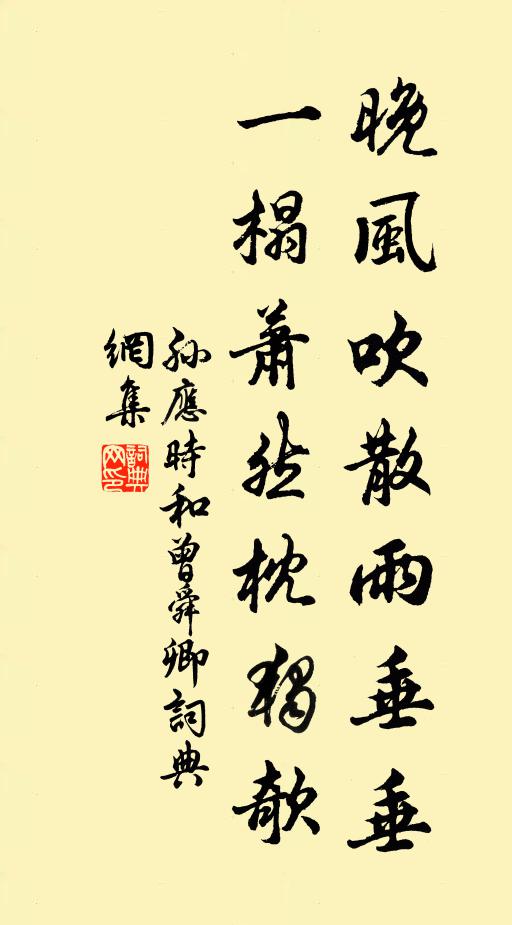 晚風吹散雨垂垂
一榻蕭然枕獨欹
孫應時和曾舜卿詞典
網集
詞典網印